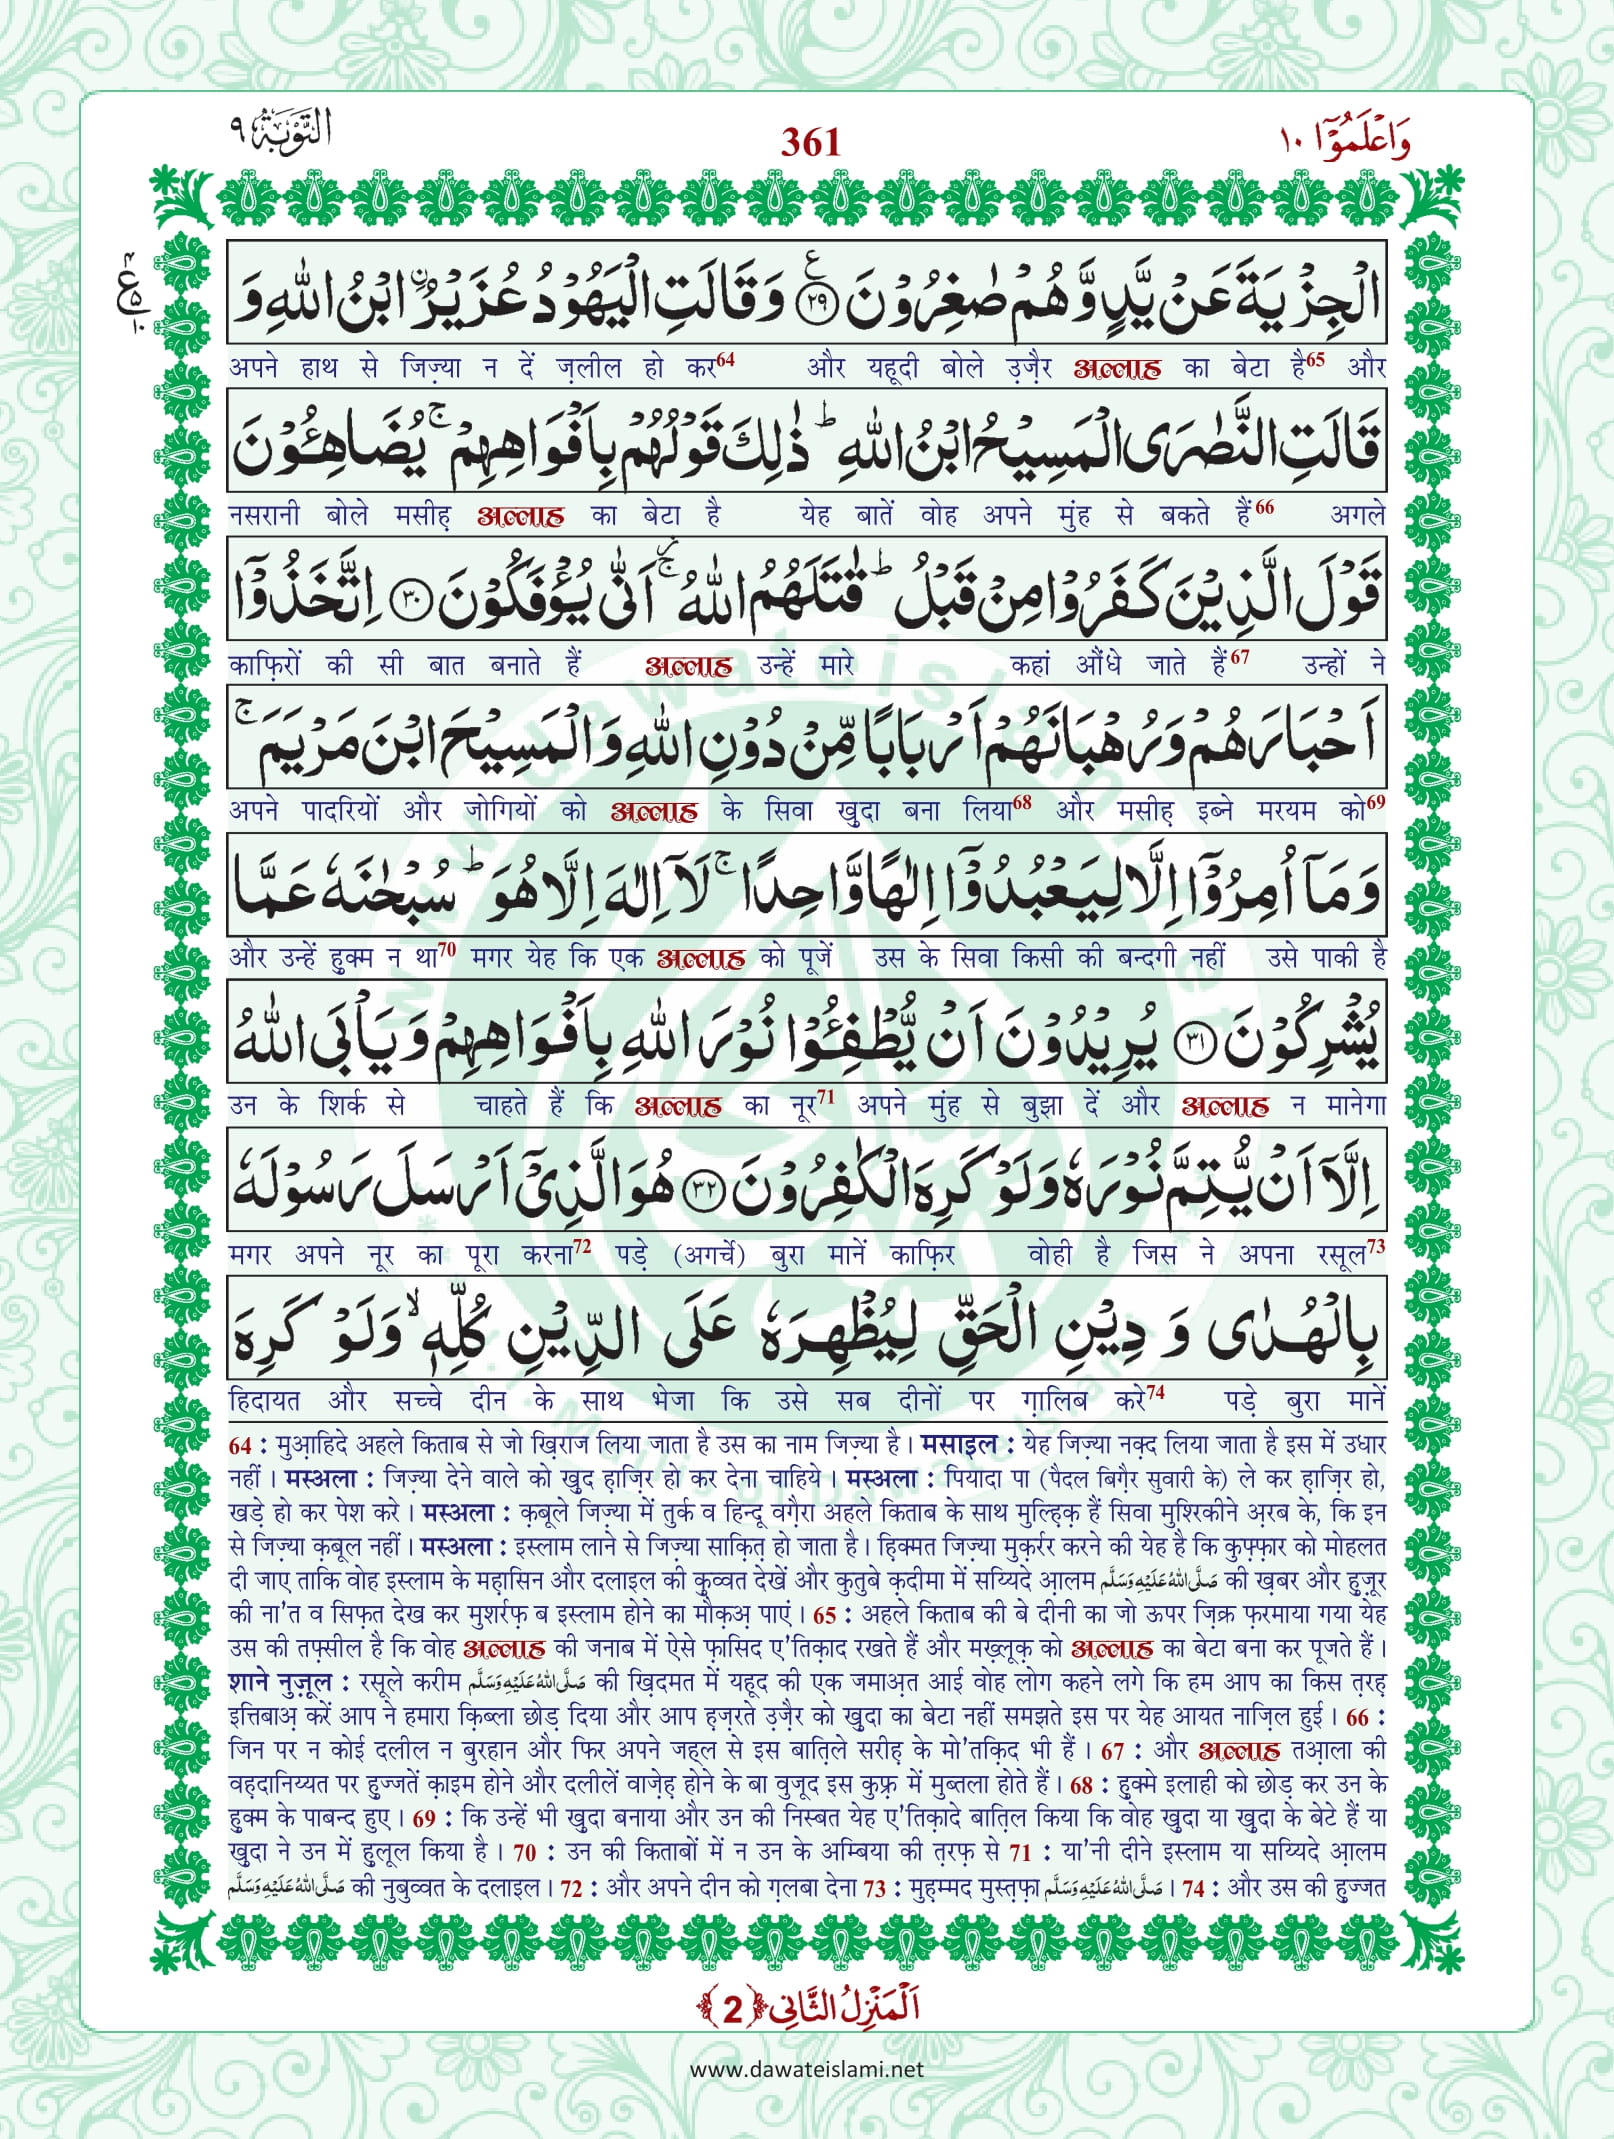 التَّوْبَة ٩
361
وَاعْلَمُوْٓا ١٠
الْجِزْيَةَ عَنْ يَّدٍ وَّهُمْ صٰغِرُوْنَ ﴿٢٩﴾ وَقَالَتِ الْيَهُوْدُ عُزَيْرُ ۨابْنُ اللّٰهِ وَ
अपने हाथ से जिज़्या न दें ज़लील हो कर64 और यहूदी बोले उ़ज़ैर अल्लाह का बेटा है65 और
قَالَتِ النَّصٰرَى الْمَسِيْحُ ابْنُ اللّٰهِ ؕ ذٰلِكَ قَوْلُهُمْ بِاَفْوَاهِهِمْ ۚ يُضَاهِـُٔوْنَ
नसरानी बोले मसीह़ अल्लाह का बेटा है येह बातें वोह अपने मुंह से बकते हैं66 अगले
قَوْلَ الَّذِيْنَ كَفَرُوْا مِنْ قَبْلُ ؕ قٰتَلَهُمُ اللّٰهُ ۚ اَنّٰى يُؤْفَكُوْنَ ﴿٣٠﴾ اِتَّخَذُوْٓا
काफ़िरों की सी बात बनाते हैं अल्लाह उन्हें मारे कहां औंधे जाते हैं67 उन्हों ने
اَحْبَارَهُمْ وَرُهْبَانَهُمْ اَرْبَابًا مِّنْ دُوْنِ اللّٰهِ وَالْمَسِيْحَ ابْنَ مَرْيَمَ ۚ
अपने पादरियों और जोगियों को अल्लाह के सिवा खुदा बना लिया68 और मसीह़ इब्ने मरयम को69
وَمَآ اُمِرُوْٓا اِلَّا لِيَعْبُدُوْٓا اِلٰهًا وَّاحِدًا ۚ لَآ اِلٰهَ اِلَّا هُوَ ؕ سُبْحٰنَهٗ عَمَّا
और उन्हें हुक्म न था70 मगर येह कि एक अल्लाह को पूजें उस के सिवा किसी की बन्दगी नहीं उसे पाकी है
يُشْرِكُوْنَ ﴿٣١﴾ يُرِيْدُوْنَ اَنْ يُّطْفِـُٔوْا نُوْرَ اللّٰهِ بِاَفْوَاهِهِمْ وَيَاْبَى اللّٰهُ
उन के शिर्क से चाहते हैं कि अल्लाह का नूर71 अपने मुंह से बुझा दें और अल्लाह न मानेगा
اِلَّآ اَنْ يُّتِمَّ نُوْرَهٗ وَلَوْ كَرِهَ الْكٰفِرُوْنَ ﴿٣٢﴾ هُوَ الَّذِيْٓ اَرْسَلَ رَسُوْلَهٗ
मगर अपने नूर का पूरा करना72 पड़े (अगर्चे) बुरा मानें काफ़िर वोही है जिस ने अपना रसूल73
بِالْهُدٰى وَ دِيْنِ الْحَقِّ لِيُظْهِرَهٗ عَلَى الدِّيْنِ كُلِّهٖ ۙ وَلَوْ كَرِهَ
हिदायत और सच्चे दीन के साथ भेजा कि उसे सब दीनों पर ग़ालिब करे74 पड़े बुरा मानें
64 : मुआ़हिदे अहले किताब से जो ख़िराज लिया जाता है उस का नाम जिज़्या है। मसाइल : येह जिज़्या नक़्द लिया जाता है इस में उधार
नहीं। मस्अला : जिज़्या देने वाले को खुद ह़ाज़िर हो कर देना चाहिये। मस्अला : पियादा पा (पैदल बिग़ैर सुवारी के) ले कर ह़ाज़िर हो,
खड़े हो कर पेश करे। मस्अला : क़बूले जिज़्या में तुर्क व हिन्दू वग़ैरा अहले किताब के साथ मुल्ह़िक़ हैं सिवा मुश्रिकीने अ़रब के, कि इन
से जिज़्या क़बूल नहीं। मस्अला : इस्लाम लाने से जिज़्या साक़ित़ हो जाता है। ह़िक्मत जिज़्या मुक़र्रर करने की येह है कि कुफ़्फ़ार को मोहलत
दी जाए ताकि वोह इस्लाम के मह़ासिन और दलाइल की कुव्वत देखें और कुतुबे क़दीमा में सय्यिदे आ़लम صَلَّى اللهُ عَلَيْهِ وَسَلَّم की ख़बर और हुज़ूर
की ना'त व सिफ़त देख कर मुशर्रफ़ ब इस्लाम होने का मौक़अ़ पाएं। 65 : अहले किताब की बे दीनी का जो ऊपर ज़िक्र फ़रमाया गया येह
उस की तफ़्सील है कि वोह अल्लाह की जनाब में ऐसे फ़ासिद ए'तिक़ाद रखते हैं और मख़्लूक़ को अल्लाह का बेटा बना कर पूजते हैं।
शाने नुज़ूल : रसूले करीम صَلَّى اللهُ عَلَيْهِ وَسَلَّم की ख़िदमत में यहूद की एक जमाअ़त आई वोह लोग कहने लगे कि हम आप का किस त़रह़
इत्तिबाअ़ करें आप ने हमारा क़िब्ला छोड़ दिया और आप ह़ज़रते उ़ज़ैर को खुदा का बेटा नहीं समझते इस पर येह आयत नाज़िल हुई। 66 :
जिन पर न कोई दलील न बुरहान और फिर अपने जह्ल से इस बात़िले सरीह़ के मो'तक़िद भी हैं। 67 : और अल्लाह तआ़ला की
वह़दानिय्यत पर हुज्जतें क़ाइम होने और दलीलें वाज़ेह़ होने के बा वुजूद इस कुफ़्र में मुब्तला होते हैं। 68 : हुक्मे इलाही को छोड़ कर उन के
हुक्म के पाबन्द हुए। 69 : कि उन्हें भी खुदा बनाया और उन की निस्बत येह ए'तिक़ादे बात़िल किया कि वोह खुदा या खुदा के बेटे हैं या
खुदा ने उन में हुलूल किया है। 70 : उन की किताबों में न उन के अम्बिया की त़रफ़ से 71 : या'नी दीने इस्लाम या सय्यिदे आ़लम
صَلَّى اللهُ عَلَيْهِ وَسَلَّم की नुबुव्वत के दलाइल। 72 : और अपने दीन को ग़लबा देना 73 : मुह़म्मद मुस्त़फ़ा صَلَّى اللهُ عَلَيْهِ وَسَلَّم। 74 : और उस की हुज्जत
اَلْمَنْزِلُ الثَّانِى ﴿2﴾
www.dawateislami.net